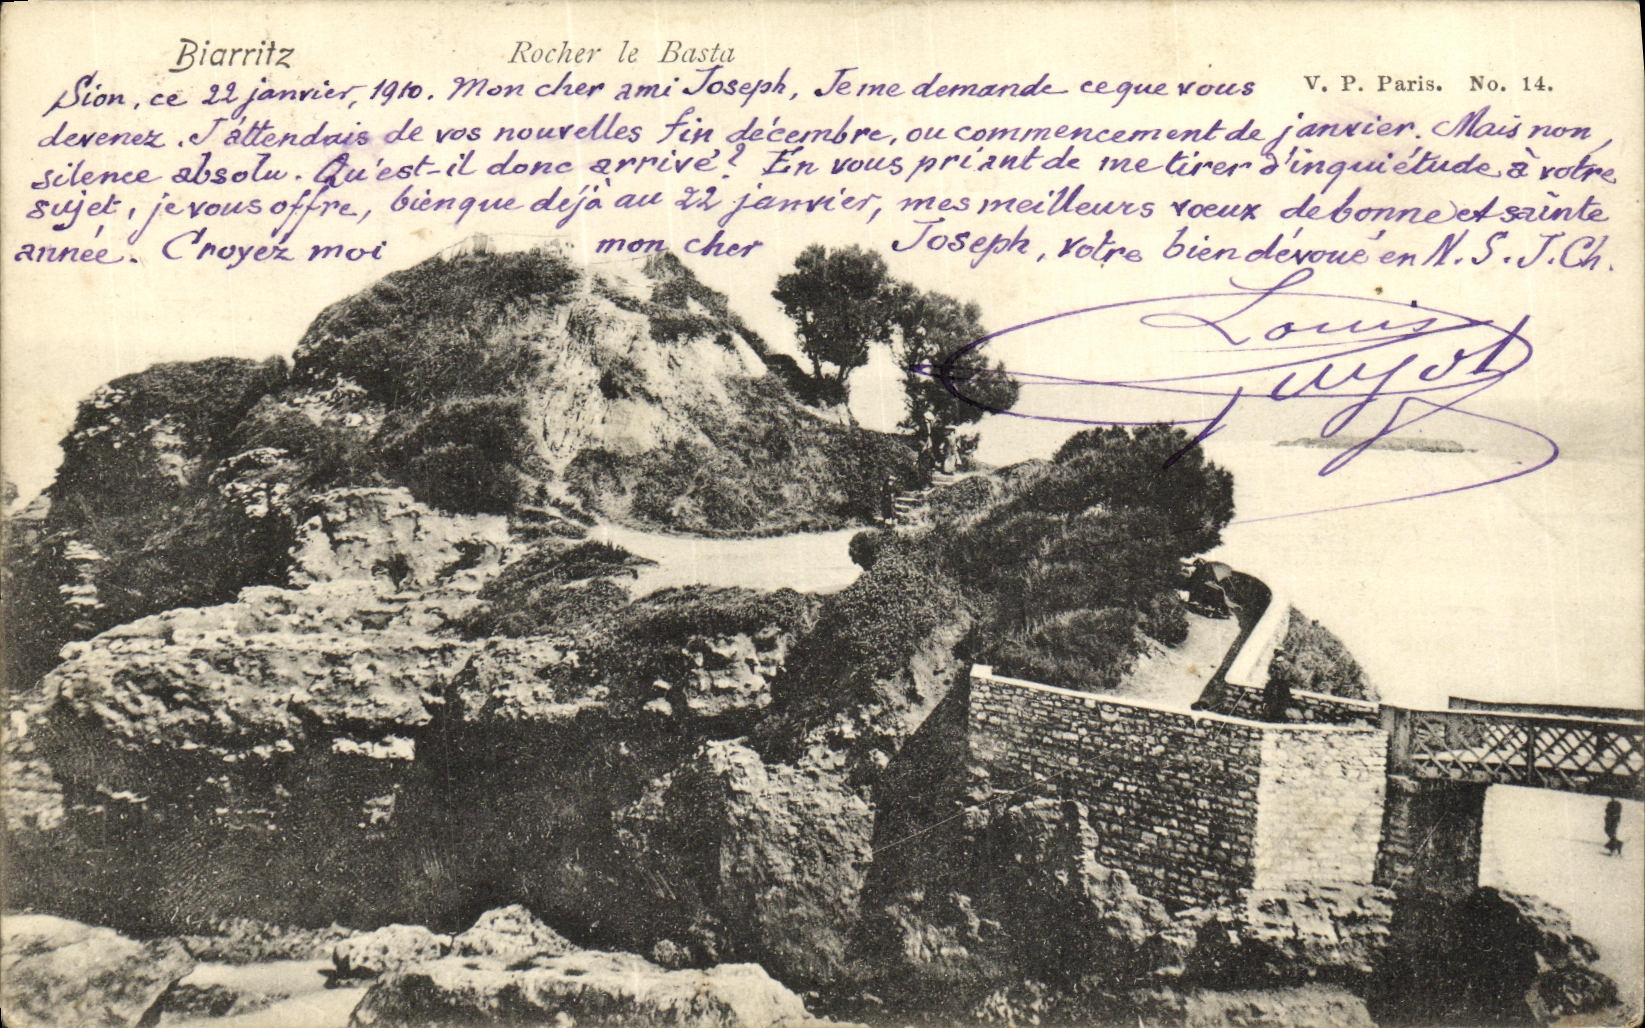 Biarritz Rocher le Basta
V. P. Paris. No. 14.
Sion, ce 22 janvier, 1910. Mon cher ami Joseph, Je me demande ce que vous
devenez. J'attendais de vos nouvelles fin décembre, ou commencement de janvier. Mais non,
silence absolu. Qu'est-il donc arrivé? En vous priant de me tirer d'inquiétude à votre
sujet, je vous offre, bien que déjà au 22 janvier, mes meilleurs vœux de bonne et sainte
année. Croyez moi mon cher Joseph, votre bien dévoué en N. S. J. Ch.
Louis
Guyot